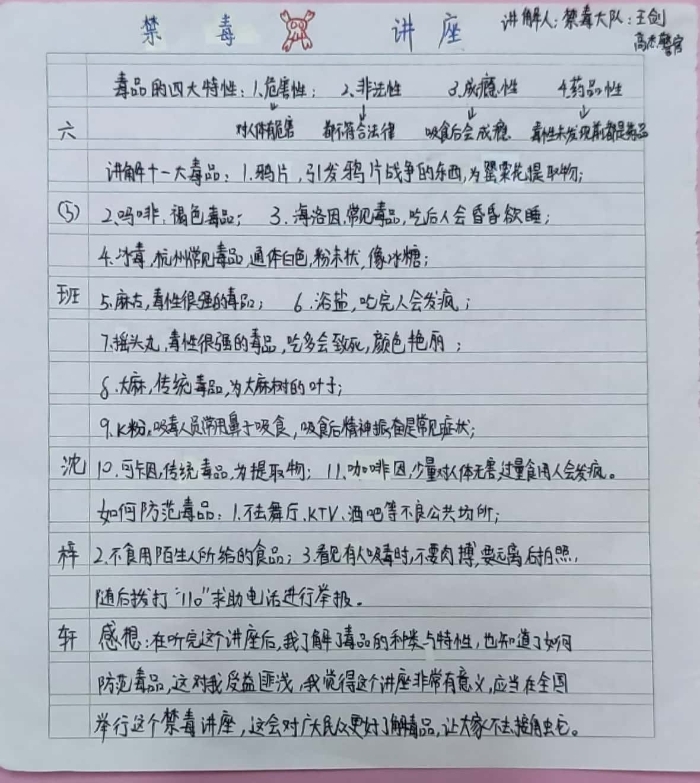 禁毒 讲座
讲解人:禁毒大队:王剑
高杰警官
毒品的四大特性:1.危害性; 2.非法性 3.成瘾性 4.药品性
六 对人体有危害 都不符合法律 吸食后会成瘾 毒性未发现前都是药品
讲解十一大毒品:1.鸦片,引发鸦片战争的东西,为罂粟花提取物;
(5) 2.吗啡,褐色毒品; 3.海洛因,常见毒品,吃后人会昏昏欲睡;
4.冰毒,杭州常见毒品,通体白色,粉末状,像冰糖;
班 5.麻古,毒性很强的毒品; 6.浴盐,吃完人会发疯;
7.摇头丸,毒性很强的毒品,吃多会致死,颜色艳丽;
8.大麻,传统毒品,为大麻树的叶子;
9.K粉,吸毒人员常用鼻子吸食,吸食后精神振奋是常见症状;
沈 10.可卡因,传统毒品,为提取物; 11.咖啡因,少量对人体无害,过量食用人会发疯。
如何防范毒品:1.不去舞厅、KTV、酒吧等不良公共场所;
梓 2.不食用陌生人所给的食品;3.看见有人吸毒时,不要肉搏,要远离后拍照,
随后拨打“110”求助电话进行举报。
轩 感想:在听完这个讲座后,我了解了毒品的种类与特性,也知道了如何
防范毒品,这对我受益匪浅,我觉得这个讲座非常有意义,应当在全国
举行这个禁毒讲座,这会对广大民众更好了解毒品,让大家不去接触它。